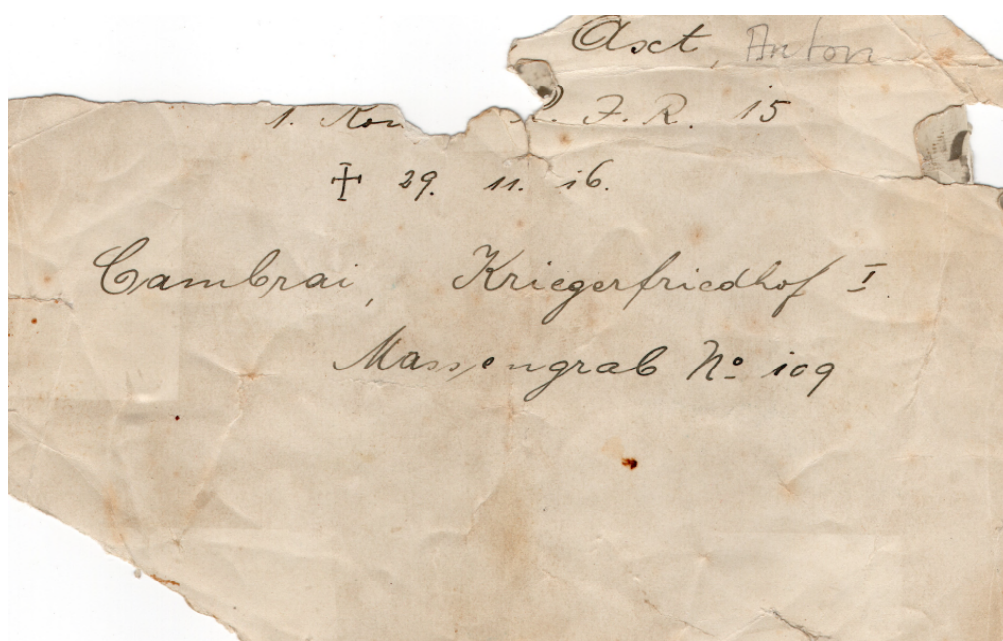 Axt, Anton
1. Kom R. J. R. 15
✝ 29. 11. 16.
Cambrai, Kriegerfriedhof I
Massengrab No 109